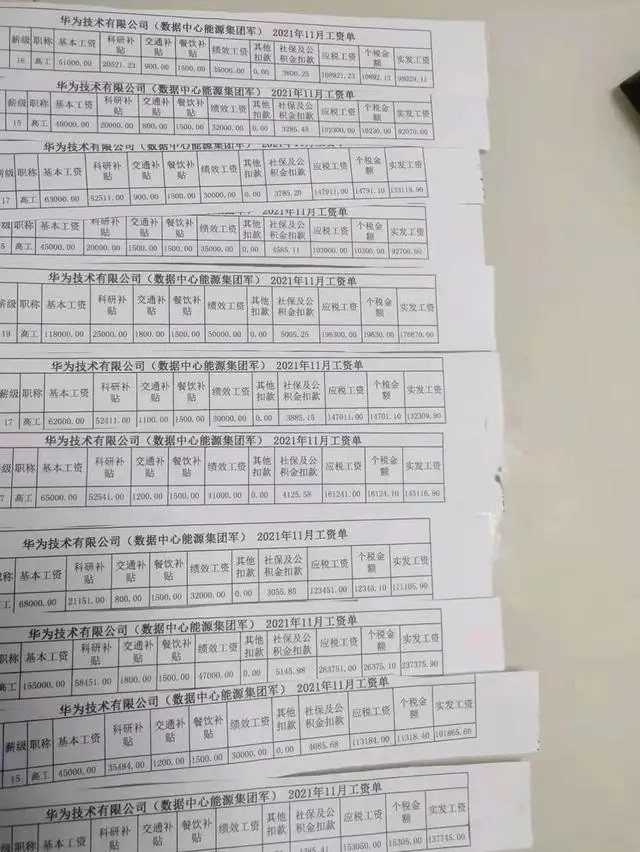 华为技术有限公司（数据中心能源集团军） 2021年11月工资单
薪级 职称 基本工资 科研补贴 交通补贴 餐饮补贴 绩效工资 其他扣款 社保及公积金扣款 应税工资 个税金额 实发工资
16 高工 51000.00 20521.23 900.00 1500.00 35000.00 0.00 108921.23 10892.12 98029.11
华为技术有限公司（数据中心能源集团军） 2021年11月工资单
薪级 职称 基本工资 科研补贴 交通补贴 餐饮补贴 绩效工资 其他扣款 社保及公积金扣款 应税工资 个税金额 实发工资
15 高工 48000.00 20000.00 800.00 1500.00 32000.00 0.00 3285.45 102300.00 10230.00 92070.00
薪级 职称 基本工资 科研补贴 交通补贴 餐饮补贴 绩效工资 其他扣款 社保及公积金扣款 应税工资 个税金额 实发工资
17 高工 63000.00 52511.00 900.00 1500.00 30000.00 0.00 3785.20 147911.00 14791.10 133119.90
2021年11月工资单
薪级 职称 基本工资 科研补贴 交通补贴 餐饮补贴 绩效工资 其他扣款 社保及公积金扣款 应税工资 个税金额 实发工资
5 高工 45000.00 20000.00 1500.00 1500.00 35000.00 0.00 4585.11 103000.00 10300.00 92700.00
华为技术有限公司（数据中心能源集团军） 2021年11月工资单
薪级 职称 基本工资 科研补贴 交通补贴 餐饮补贴 绩效工资 其他扣款 社保及公积金扣款 应税工资 个税金额 实发工资
19 高工 118000.00 25000.00 1800.00 1500.00 50000.00 0.00 5005.25 196300.00 19630.00 176670.00
华为技术有限公司（数据中心能源集团军） 2021年11月工资单
薪级 职称 基本工资 科研补贴 交通补贴 餐饮补贴 绩效工资 其他扣款 社保及公积金扣款 应税工资 个税金额 实发工资
17 高工 62000.00 52411.00 1100.00 1500.00 30000.00 0.00 3885.15 147011.00 14701.10 132309.90
华为技术有限公司（数据中心能源集团军） 2021年11月工资单
薪级 职称 基本工资 科研补贴 交通补贴 餐饮补贴 绩效工资 其他扣款 社保及公积金扣款 应税工资 个税金额 实发工资
7 高工 65000.00 52541.00 1200.00 1500.00 41000.00 0.00 4125.58 161241.00 16124.10 145116.90
华为技术有限公司（数据中心能源集团军） 2021年11月工资单
职称 基本工资 科研补贴 交通补贴 餐饮补贴 绩效工资 其他扣款 社保及公积金扣款 应税工资 个税金额 实发工资
工 68000.00 21151.00 800.00 1500.00 32000.00 0.00 3055.85 123451.00 12345.10 111105.90
华为技术有限公司（数据中心能源集团军） 2021年11月工资单
职称 基本工资 科研补贴 交通补贴 餐饮补贴 绩效工资 其他扣款 社保及公积金扣款 应税工资 个税金额 实发工资
高工 155000.00 58451.00 1800.00 1500.00 47000.00 0.00 5145.98 263751.00 26375.10 237375.90
华为技术有限公司（数据中心能源集团军） 2021年11月工资单
薪级 职称 基本工资 科研补贴 交通补贴 餐饮补贴 绩效工资 其他扣款 社保及公积金扣款 应税工资 个税金额 实发工资
15 高工 45000.00 35484.00 1200.00 1500.00 30000.00 0.00 4085.68 113184.00 11318.40 101865.60
华为技术有限公司（数据中心能源集团军） 2021年11月工资单
职称 基本工资 科研补贴 交通补贴 餐饮补贴 绩效工资 其他扣款 社保及公积金扣款 应税工资 个税金额 实发工资
153050.00 15305.00 137745.00